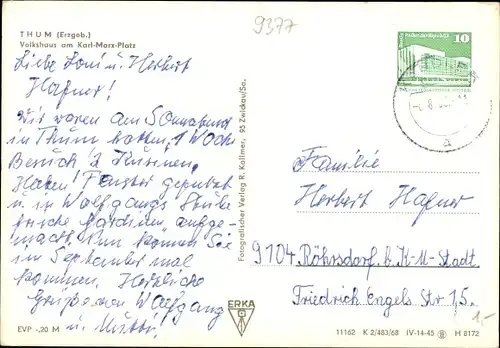 9377
THUM (Erzgeb.)
Volkshaus am Karl-Marx-Platz
Liebe Loni u. Herbert
Hafner!
Wir waren am Sonnabend
in Thum hatten 1 Woche
Besuch 2 Kusinen,
Haben Fenster geputzt
u. in Wolfgangs Stube
frische Gardinen aufge-
macht. Nun kommen Sie
in September mal
kommen. Herzliche
Grüße von Wolfgang
u. Mutti!
EVP -,20 M
Fotografischer Verlag R. Kallmer, 95 Zwickau/Sa.
ERKA
10
Familie
Herbert Hafner
9104 Röhrsdorf b. K-M-Stadt
Friedrich Engels Str 15.
1,-
11162 K 2/483/68 IV-14-45 H 8172